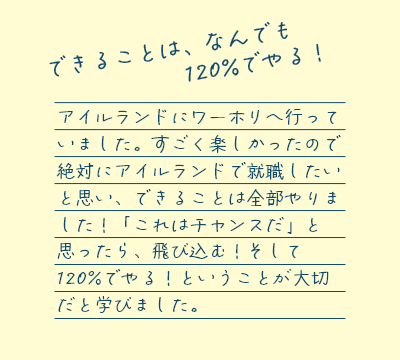 できることは、なんでも
120%でやる！
アイルランドにワーホリへ行って
いました。すごく楽しかったので
絶対にアイルランドで就職したい
と思い、できることは全部やりま
した！「これはチャンスだ」と
思ったら、飛び込む！そして
120%でやる！ということが大切
だと学びました。